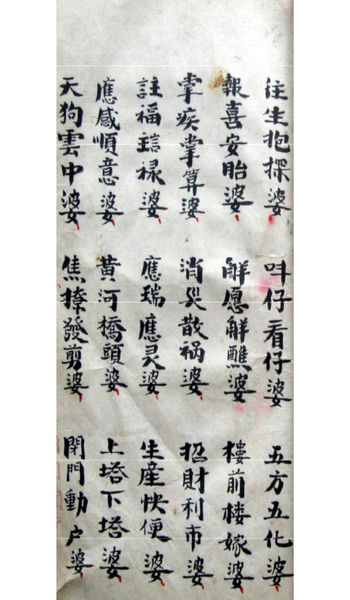 往生抱探婆 呌仔看仔婆 五方五化婆
報喜安胎婆 觧愿觧醮婆 樓前楼嫁婆
掌疾掌算婆 消災散祸婆 招財利市婆
註福註禄婆 應瑞應灵婆 生産快便婆
應感順意婆 黄河橋頭婆 上塔下塔婆
天狗雲中婆 焦撩發剪婆 閉門動户婆